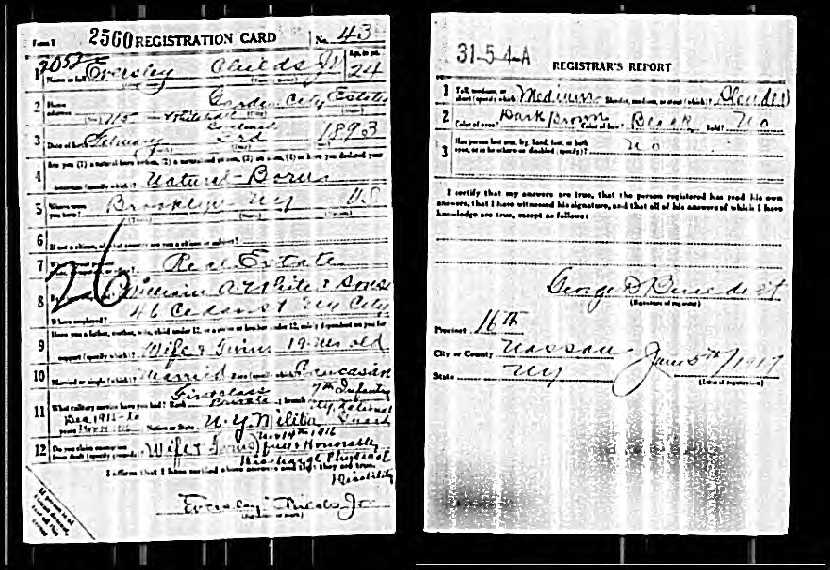 Form 1 2560 REGISTRATION CARD No. 43
1 Name in full Eversley Childs Jr Age, in yrs. 24
2 Home address 115 Garden City Estates
3 Date of birth February 3rd 1893
4 Are you (1) a natural born citizen, (2) a naturalized citizen, (3) an alien, (4) or have you declared your
intention (specify which)? Natural-Born
5 Where were you born? Brooklyn NY US
6 If not a citizen, of what country are you a citizen or subject?
7 Real Estate
26
8 William A White & Sons
46 Cedar St NY City
Where employed?
9 Have you a father, mother, wife, child under 12, or a sister or brother under 12, solely dependent on you for
support (specify which)? Wife & Twins old
10 Married or single (which)? Married Race (specify which)? Caucasian
First class 7th Infantry
11 What military service have you had? Rank Private branch NY National
years Nation or State N.Y. Militia Guard
Nov 14th 1916
12 Do you claim exemption from draft (specify grounds)? Wife & Twins Honorably
Discharged Physical
Disability
I affirm that I have verified above answers and that they are true.
Eversley Childs Jr
(Signature or mark)
31-5-4-A REGISTRAR'S REPORT
1 Tall, medium, or short (specify which)? Medium Slender, medium, or stout (which)? Slender
2 Color of eyes? Dark Brown Color of hair? Black Bald? No
3 Has person lost arm, leg, hand, foot, or both eyes, or is he otherwise disabled (specify)? No
I certify that my answers are true, that the person registered has read his own
answers, that I have witnessed his signature, and that all of his answers of which I have
knowledge are true, except as follows:
George D
(Signature of registrar)
Precinct 16th
City or County Nassau June 5th/1917
State NY (Date of registration)